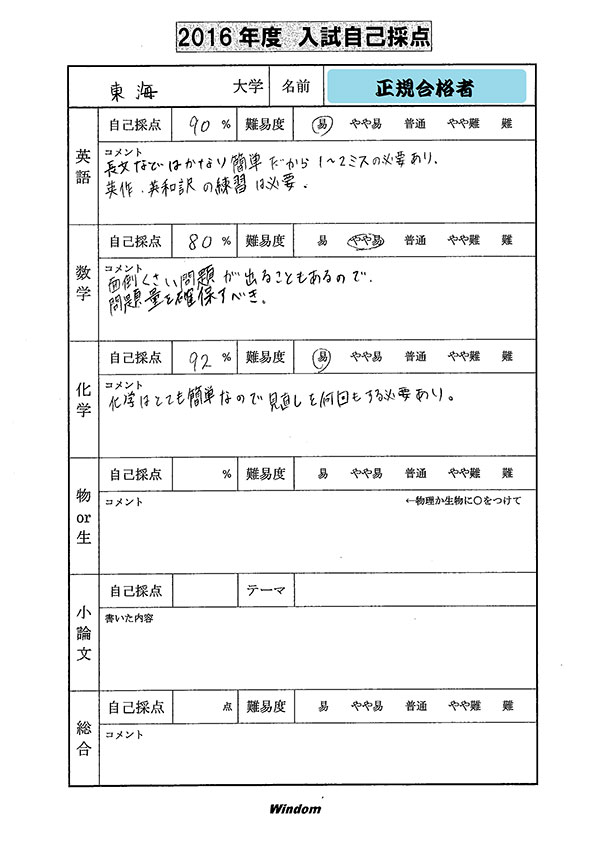 2016年度 入試自己採点
東海 大学 名前 正規合格者
英語 自己採点 90 % 難易度 易 やや易 普通 やや難 難
コメント
長文などはかなり簡単だから1〜2ミスの必要あり.
英作・英和訳の練習は必要.
数学 自己採点 80 % 難易度 易 やや易 普通 やや難 難
コメント
面倒くさい問題が出ることもあるので.
問題量を確保すべき.
化学 自己採点 92 % 難易度 易 やや易 普通 やや難 難
コメント
化学はとても簡単なので見直しを何回もする必要あり。
物or生 自己採点 % 難易度 易 やや易 普通 やや難 難
コメント ←物理か生物に○をつけて
小論文 自己採点 テーマ
書いた内容
総合 自己採点 点 難易度 易 やや易 普通 やや難 難
コメント
Windom